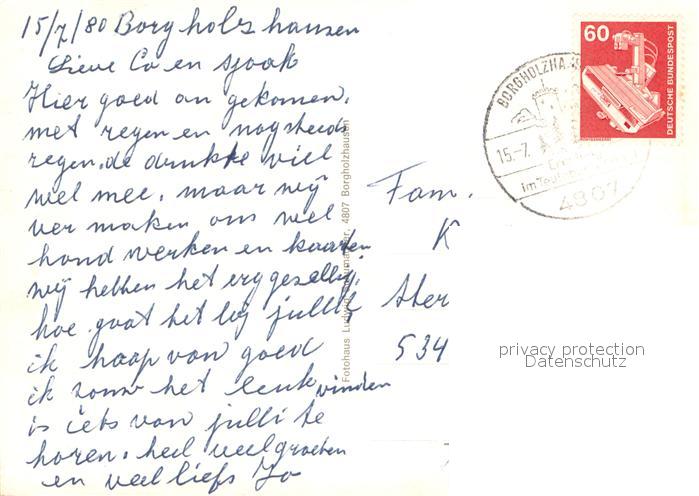 15/7/80 Borgholzhausen
Lieve Co en Sjaak
Hier goed an gekomen.
met regen en nog steeds
regen. de drukte viel
wel mee. maar wij
ver maken ons wel
hand werken en kaarten
wij hebben het erg gezellig.
hoe gaat het bij jullie
ik haap van goed
ik zouw het leuk vinden
is iets van julli te
horen. heel veel groeten
en veel liefs Jo
Fam.
K
Her
534
Fotohaus Ludwig 4807 Borgholzhausen
60
DEUTSCHE BUNDESPOST
BORGHOLZHA
15.-7.
im Teu
4807
privacy protection
Datenschutz